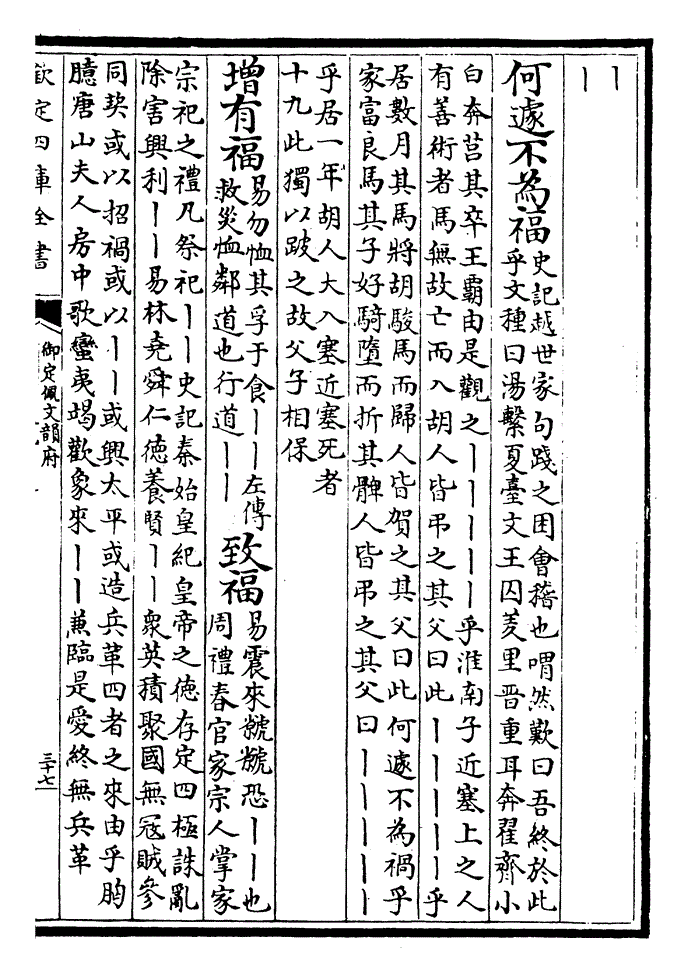 丨
丨
何遽不為福
史記越世家句踐之困會稽也喟然歎曰吾終於此
乎文種曰湯繫夏臺文王囚羑里晉重耳奔翟齊小
白奔莒其卒王霸由是觀之丨丨丨丨丨乎淮南子近塞上之人
有善術者馬無故亡而入胡人皆弔之其父曰此丨丨丨丨丨乎
居數月其馬將胡駿馬而歸人皆賀之其父曰此何遽不為禍乎
家富良馬其子好騎墮而折其髀人皆弔之其父曰丨丨丨丨丨
乎居一年胡人大入塞近塞死者
十九此獨以跛之故父子相保
增有福
易勿恤其孚于食丨丨左傳
救災恤鄰道也行道丨丨
致福
易震來虩虩恐丨丨也
周禮春官家宗人掌家
宗祀之禮凡祭祀丨丨史記秦始皇紀皇帝之徳存定四極誅亂
除害興利丨丨易林堯舜仁徳養賢丨丨衆英積聚國無冦賊參
同契或以招禍或以丨丨或興太平或造兵革四者之來由乎胸
臆唐山夫人房中歌蠻夷竭歡象來丨丨兼臨是愛終無兵革
欽定四庫全書
御定佩文韻府
三十七